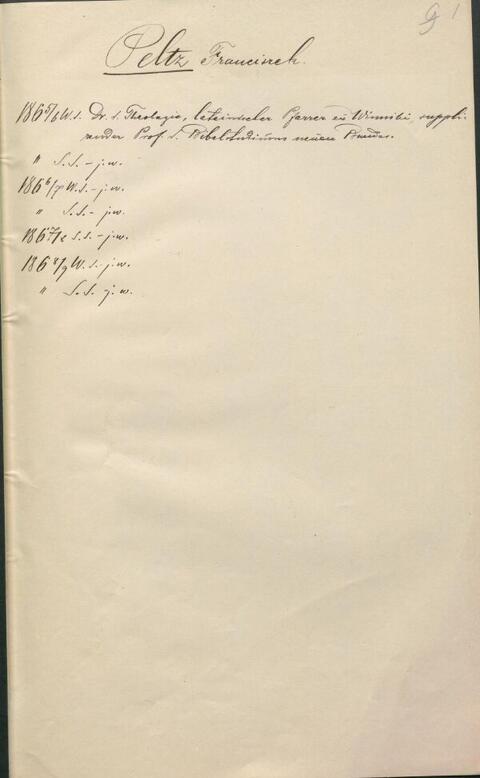 9 1
Peltz Franciszek.
1865/6 W.S. Dr. d. Theologie, lateinischer Pfarrer zu Winniki, suppli-
render Prof. d. Bibelstudiums neuen Bundes.
" S.S. – j.w.
1866/7 W.S. – j.w.
" S.S. – j.w.
1867/8 S.S. – j.w.
1868/9 W.S. – j.w.
" S.S. j.w.